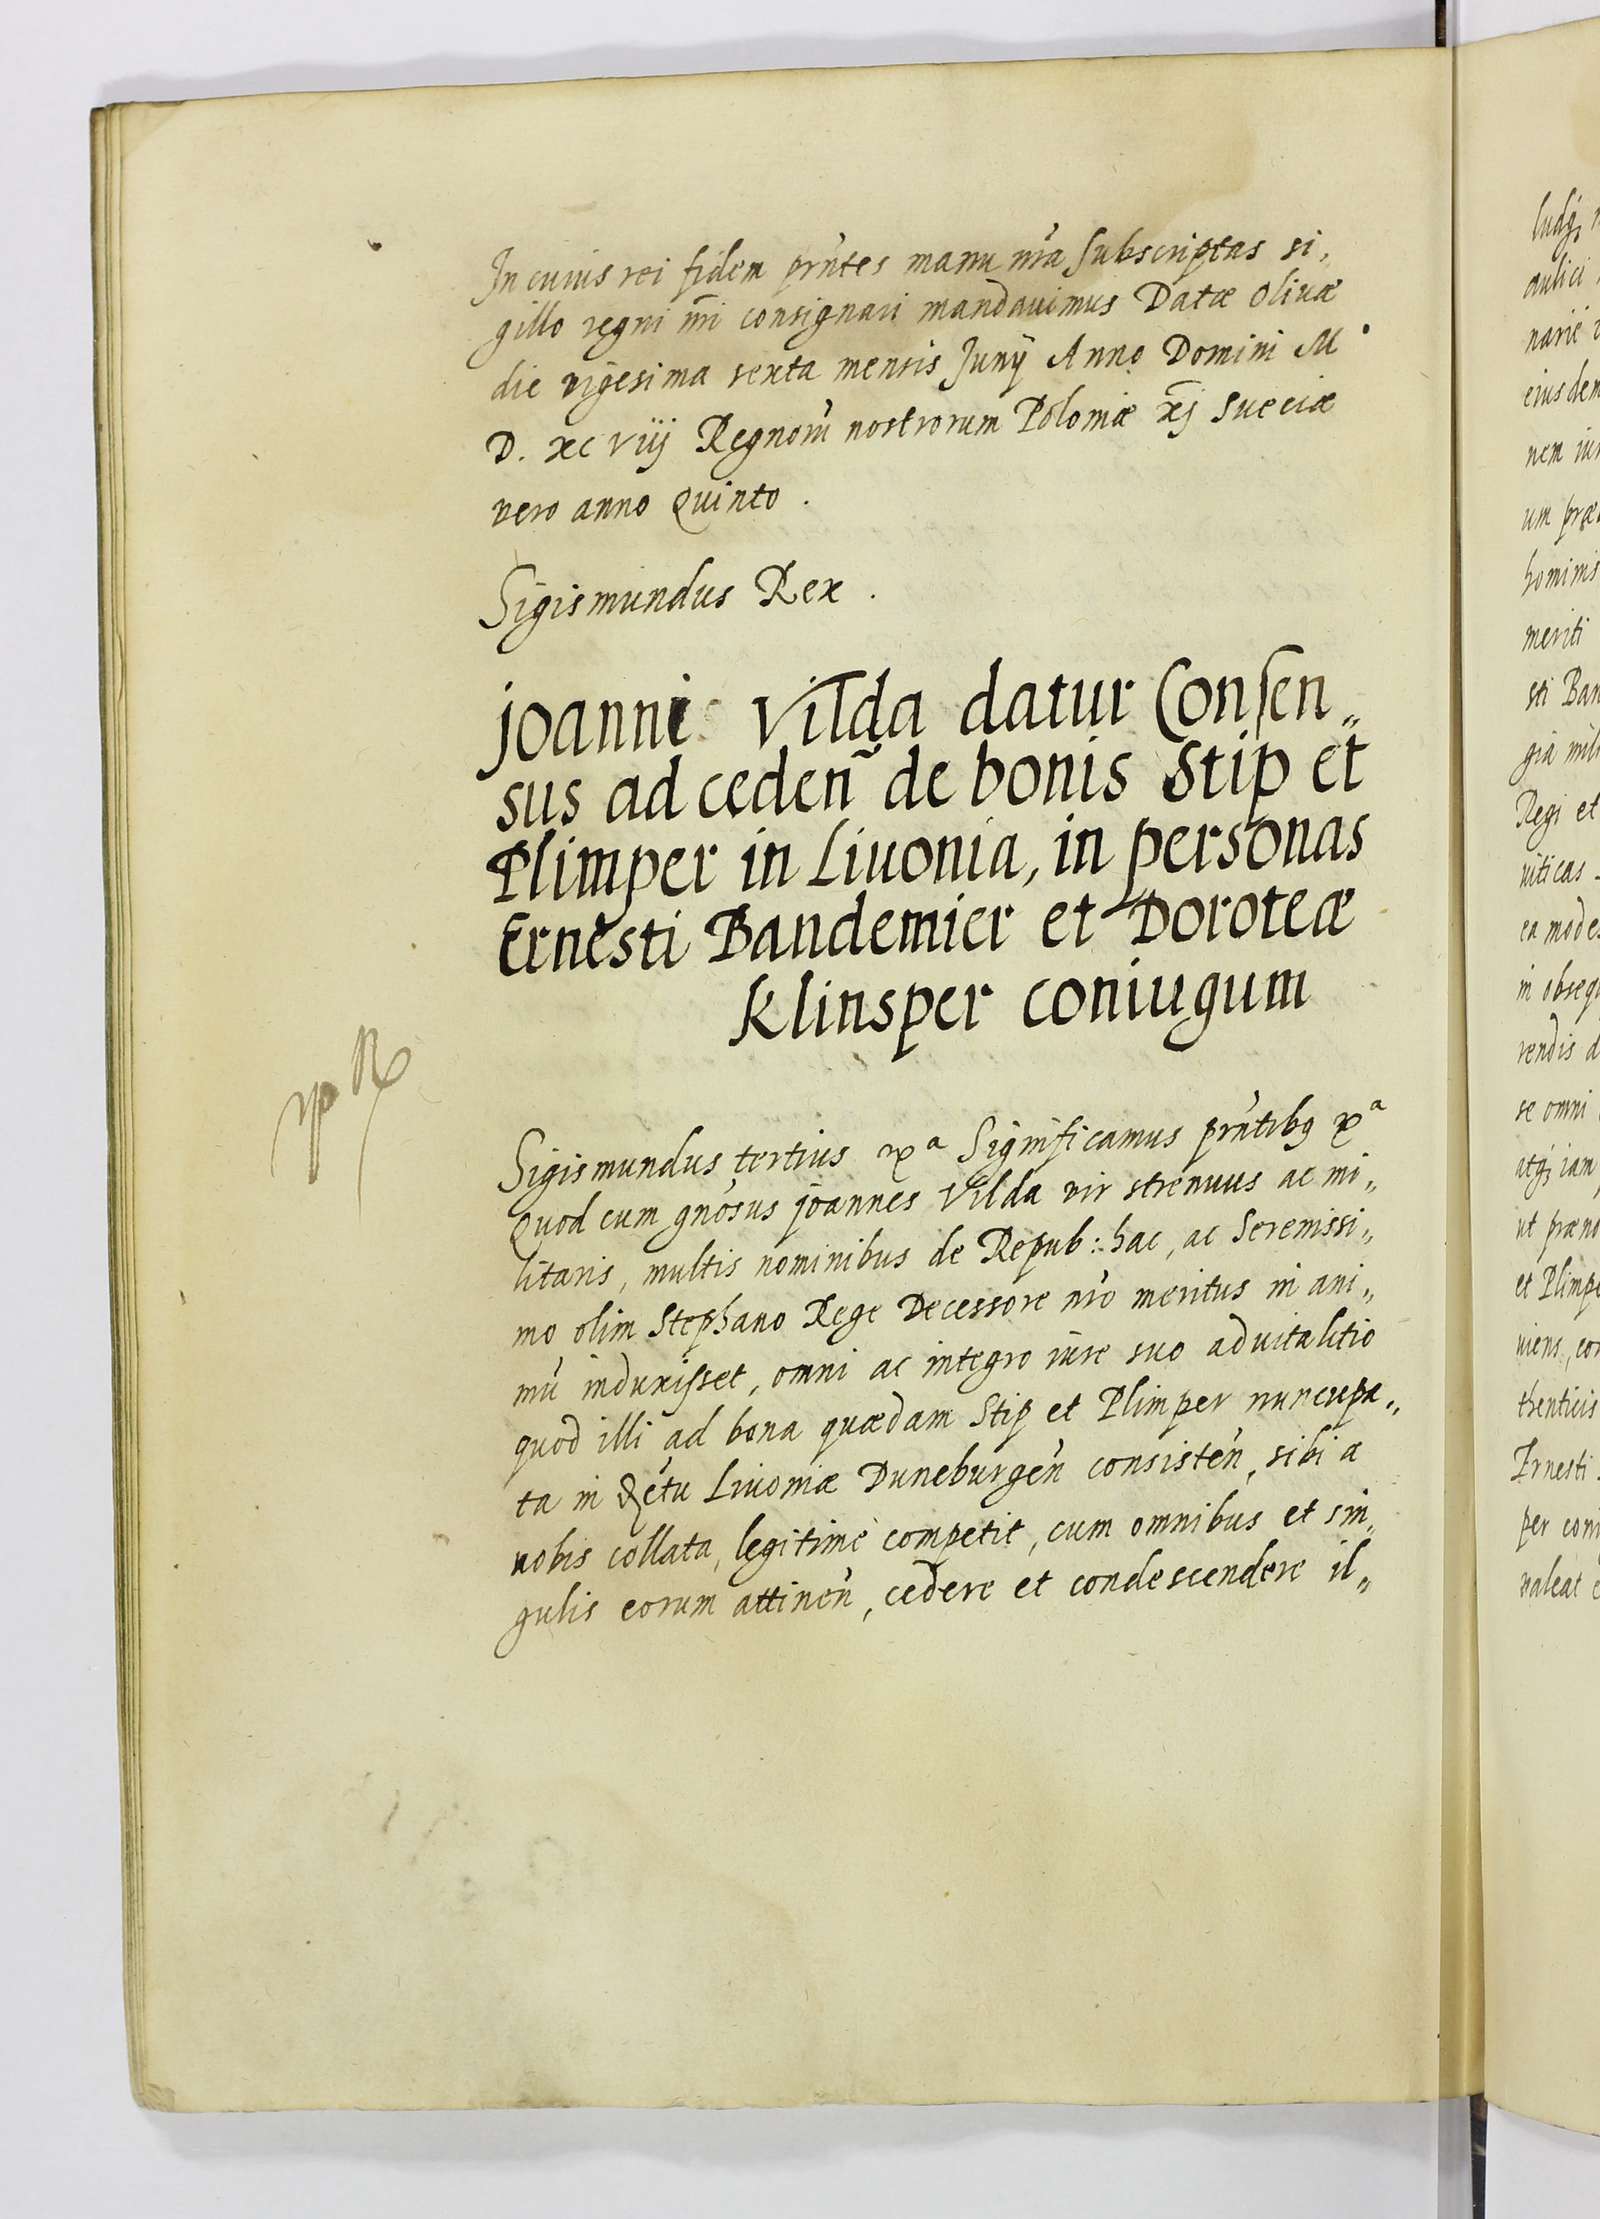 In cuius rei fidem prñtes manu nr̃a subscriptas si,
gillo regni nr̃i consignari mandauimus Datæ Oliuæ
die vigesima sexta mensis Junÿ Anno Domini M°
D. xc viÿ Regnorũ nostrorum Poloniæ xj Sueciæ
vero anno Quinto.
Sigismundus Rex.
Joanni Vilda datur Consen„
sus ad ceden̄ de bonis Stip et
Plimper in Liuonia, in personas
Ernesti Bandemier et Doroteæ
Klinsper coniugum
Sigismundus tertius rxª Significamus prñtibꝫ rxª
Quod cum gnõsus Joannes Vilda vir strenuus ac mi„
litaris, multis nominibus de Repub: hac, ac Serenissi„
mo olim Stephano Rege Decessore nrõ meritus in ani„
mũ induxisset, omni ac integro iure suo aduitalitio
quod illi ad bona quædam Stip et Plimper nuncupa„
ta in Liuoniæ Duneburgeñ consisteñ, sibi a
nobis collata, legitimè competit, cum omnibus et sin„
gulis eorum attineñ, cedere et condescendere il„
aulici
eiusdem
hominis
meriti
sti Ban
Regi et
uiticas
in obsequ
rendis d
se omni
atqꝫ iam
ut præno
et Plimpe
uiens, con
thenticis
Ernesti
per coni
ualeat e